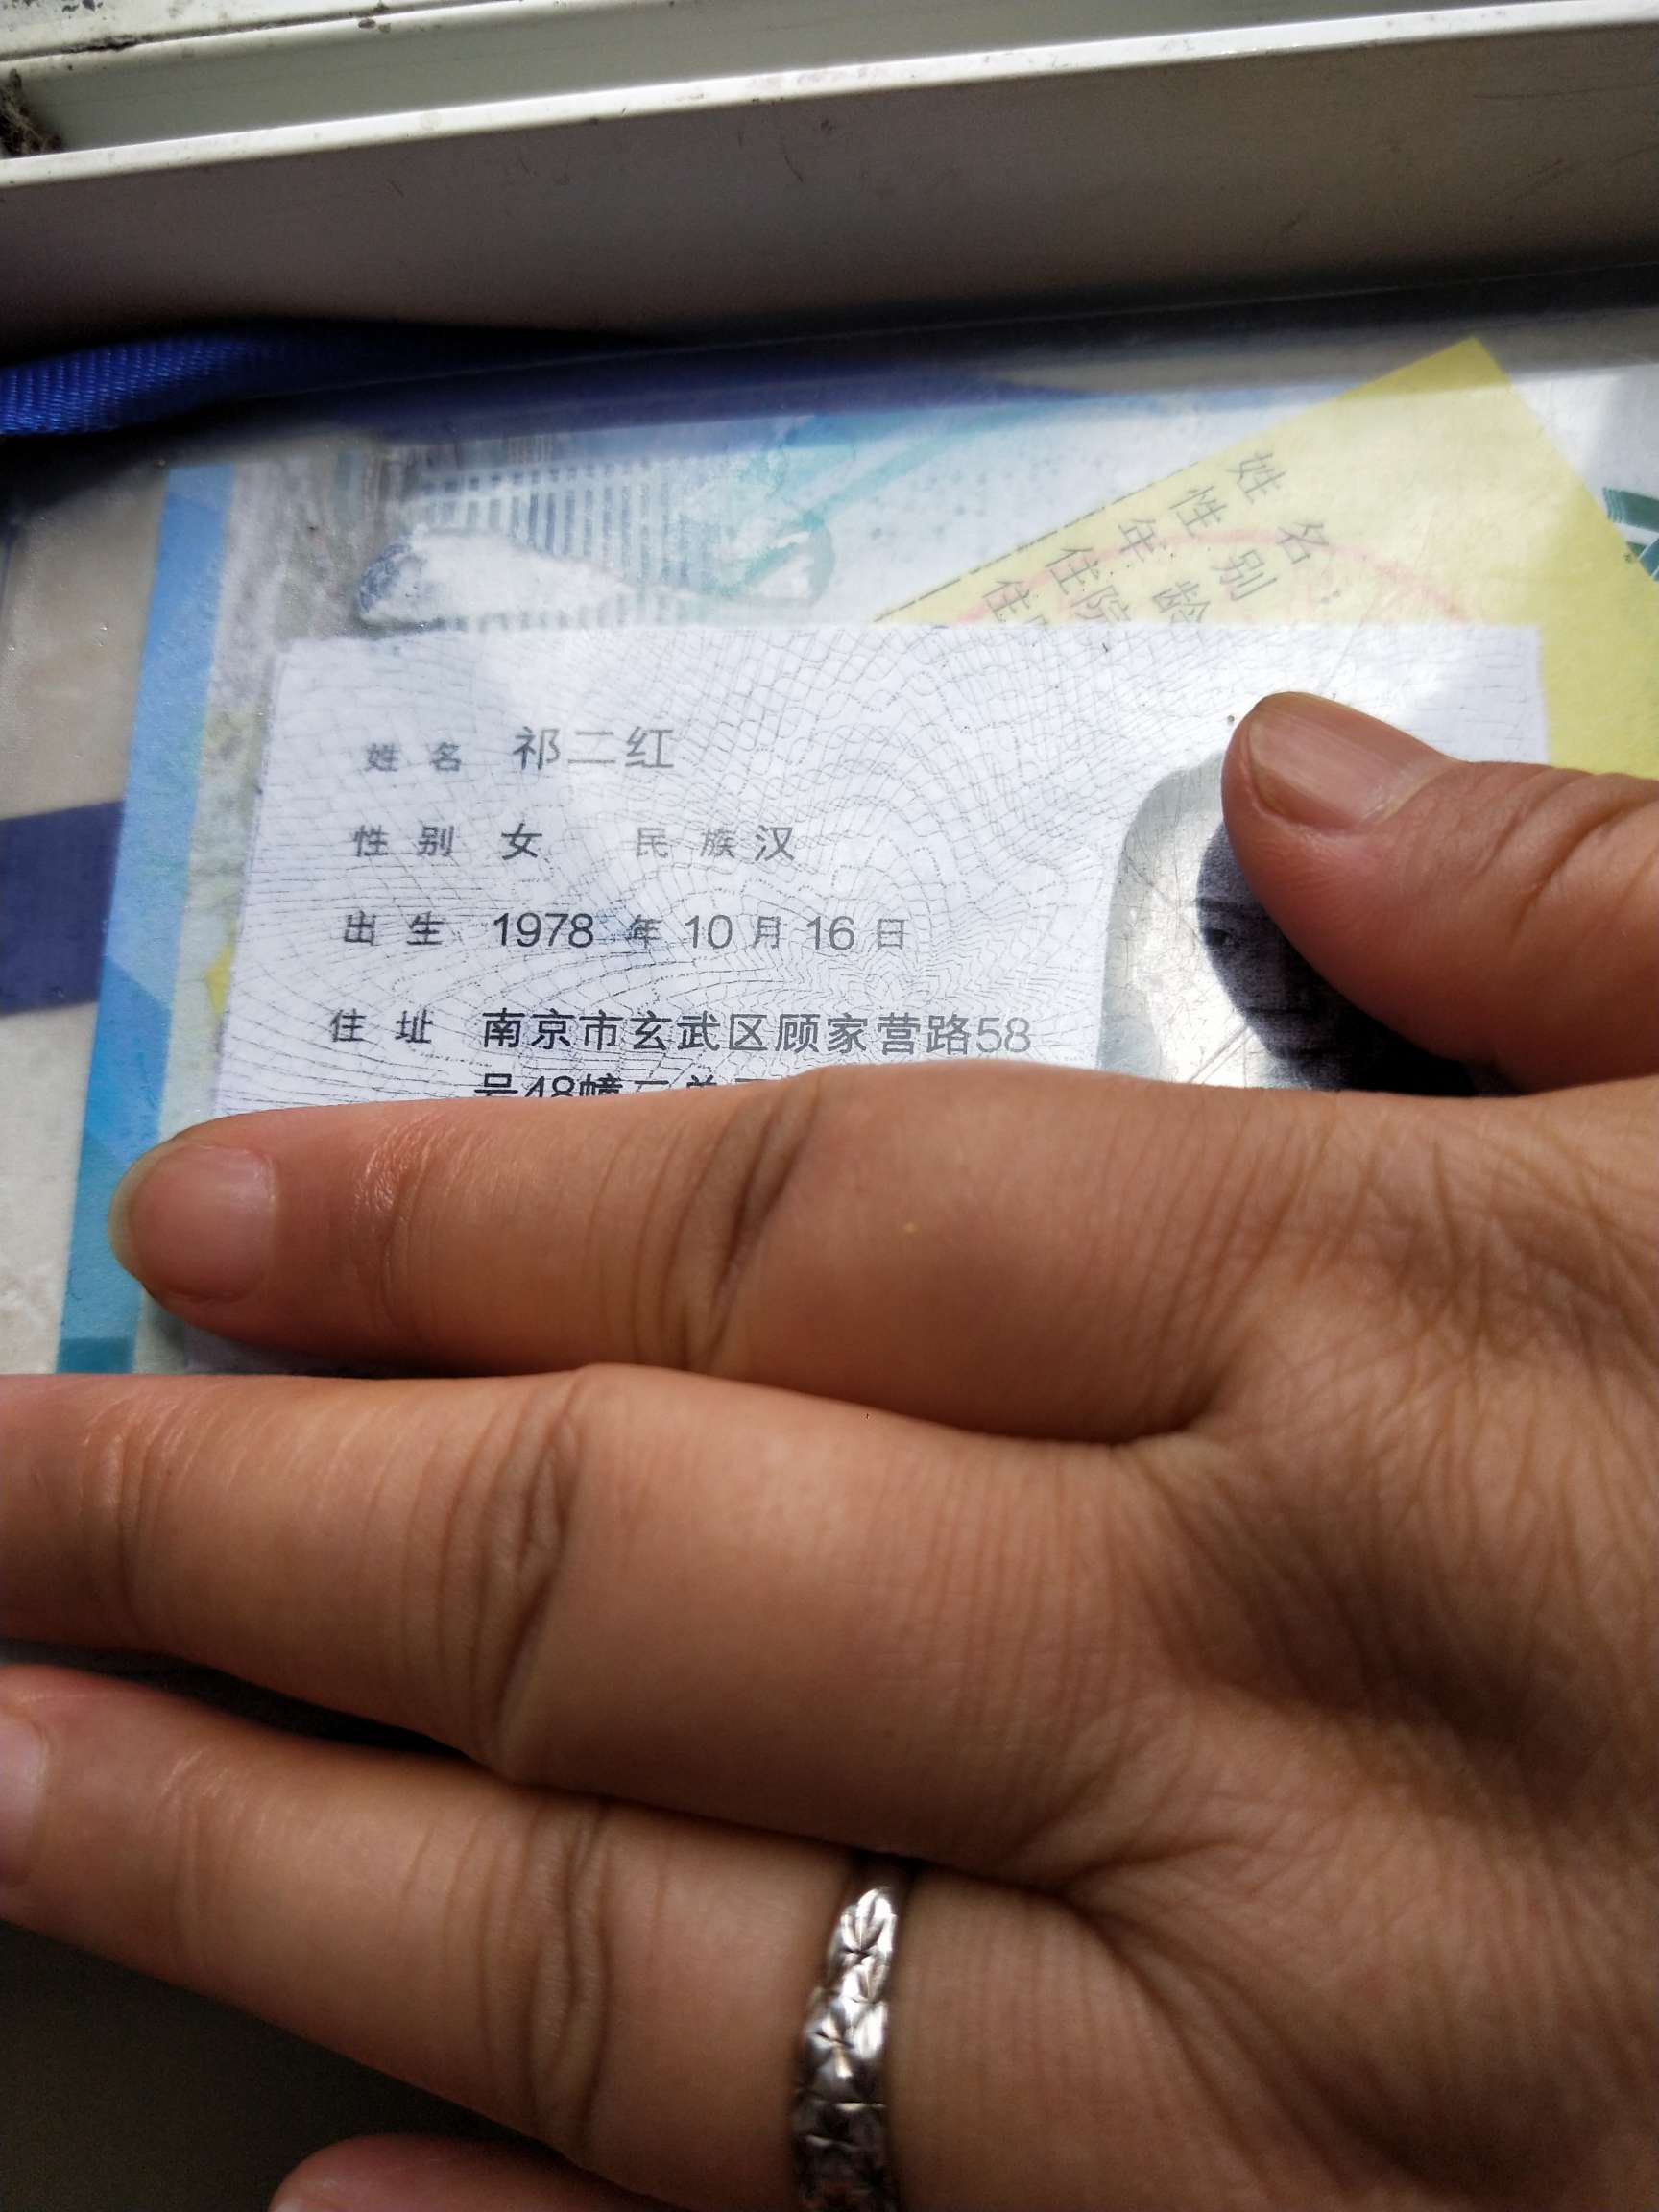 姓名：
性别
年龄
住院
住
姓名 祁二红
性别 女 民族 汉
出生 1978 年 10 月 16 日
住址 南京市玄武区顾家营路58
号48幢二单元